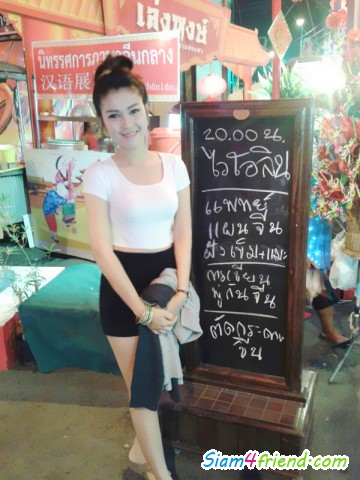 เล่งพงษ์
นิทรรศการภาษาจีนกลาง
汉语展
20.00 น.
ไวโอลิน
แพทย์
แผนจีน
ฝังเข็ม+แมะ
การเขียน
พู่กันจีน
ตัดกระดาษ
จีน
Siam4friend.com